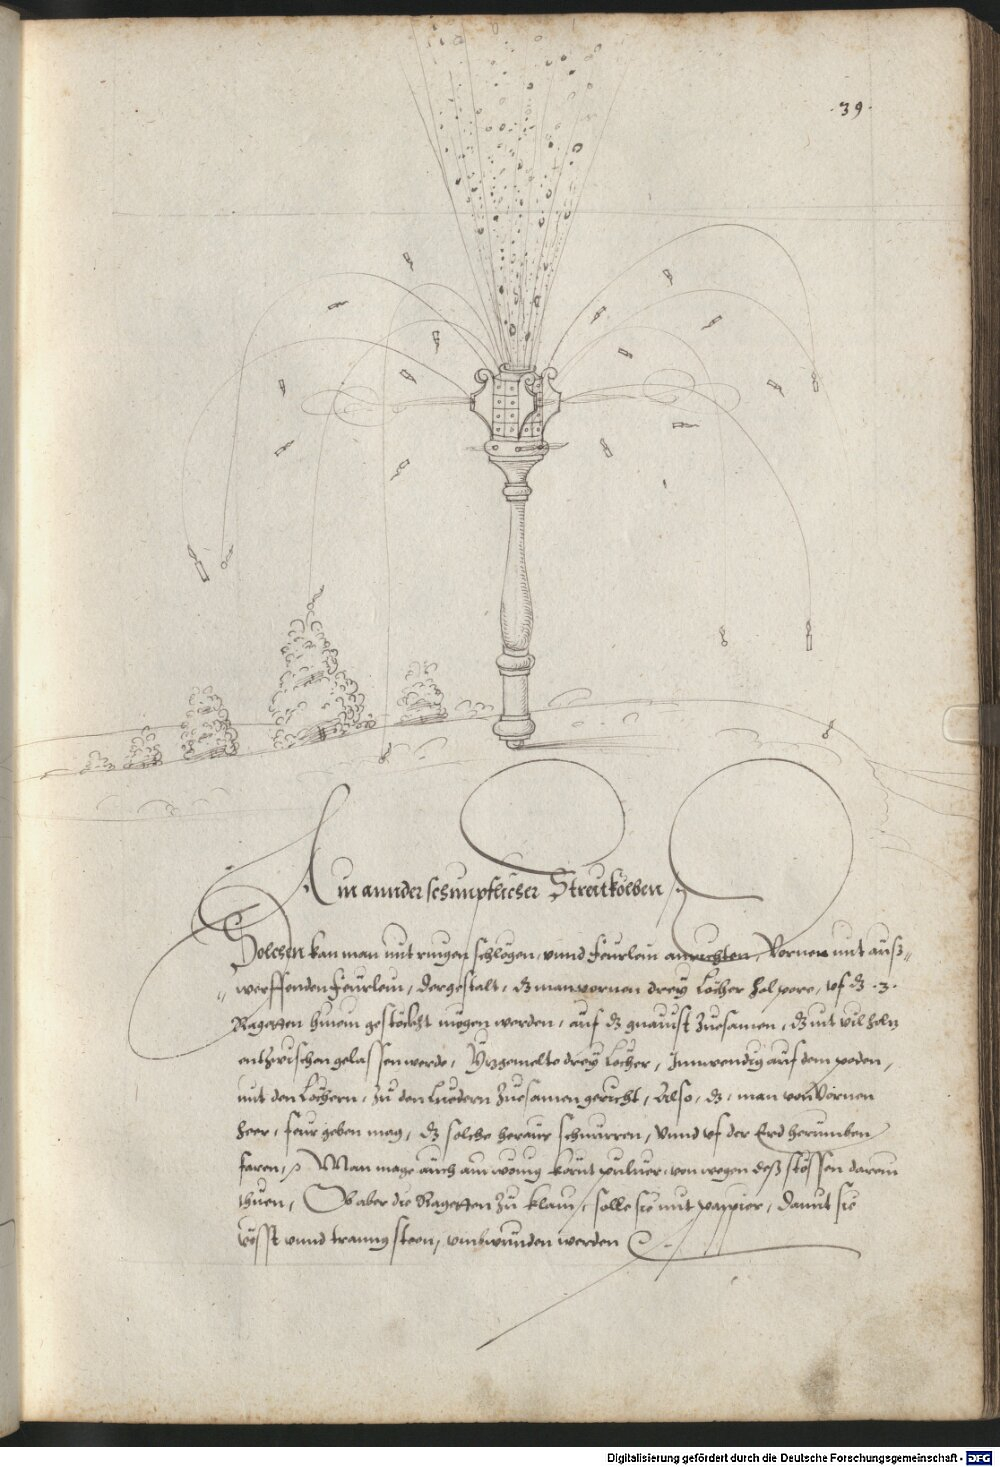 .39.
Ain annder schimpflicher Streitkolben
Solchen kan man mit ringen schlegen, unnd feurlein anrichten, Vornen mit auß„
„werffenden feurlein, dergestalt, dz man vornen drey Löcher hol pore, uf dz .3.
Ragetten hinein gesteckht mögen werden, auf dz gnauist Zuesamen, dz nit vil holtz
entzwischen gelassen werde, Vorgemelte drey Löcher, Innwendig auf dem poden,
mit den Löchern, zu den Luedern Zuesamen gericht, Also, dz, man von Vornen
heer, feur geben mag, dz solche heraus schnurren, unnd uf der Erd herumben
faren, Man mags auch ain wenig körnt puluer, von wegen deß stossen darein
thuen, Ob aber die Ragetten zu klain, solle sie mit pappier, damit sie
vösst unnd tranng steen, umbwunden werden
Digitalisierung gefördert durch die Deutsche Forschungsgemeinschaft - DFG